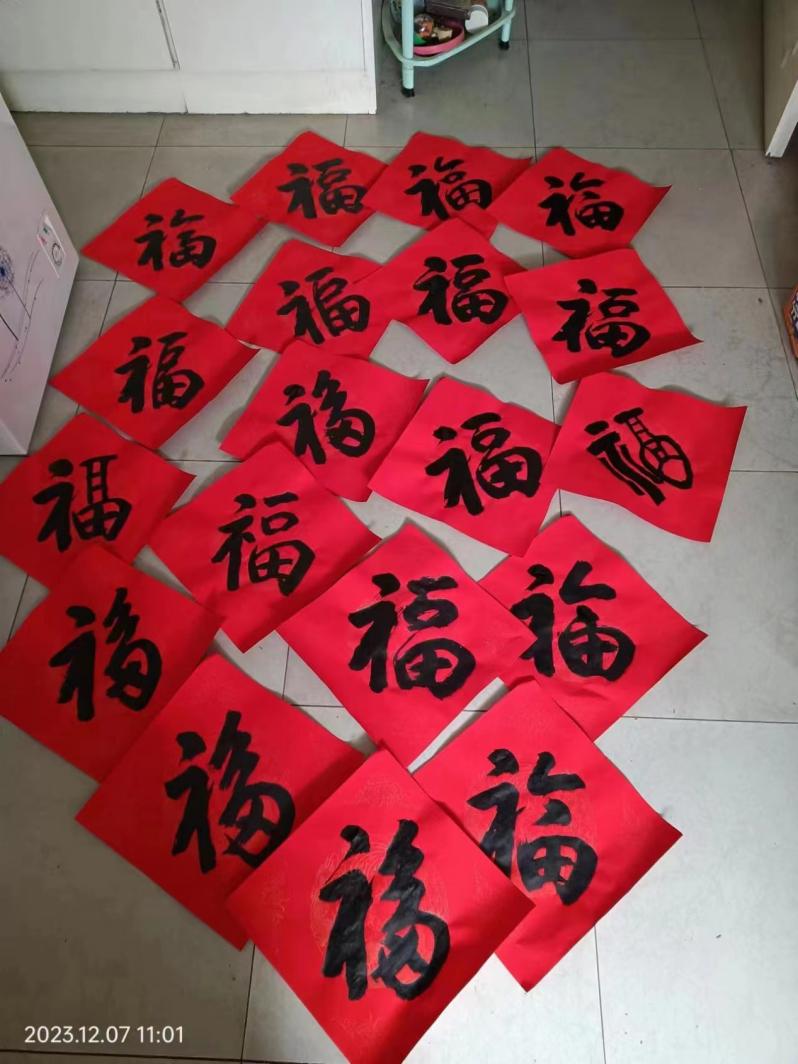 福
福
福
福
福
福
福
福
福
福
福
福
福
福
福
福
福
福
福
2023.12.07 11:01